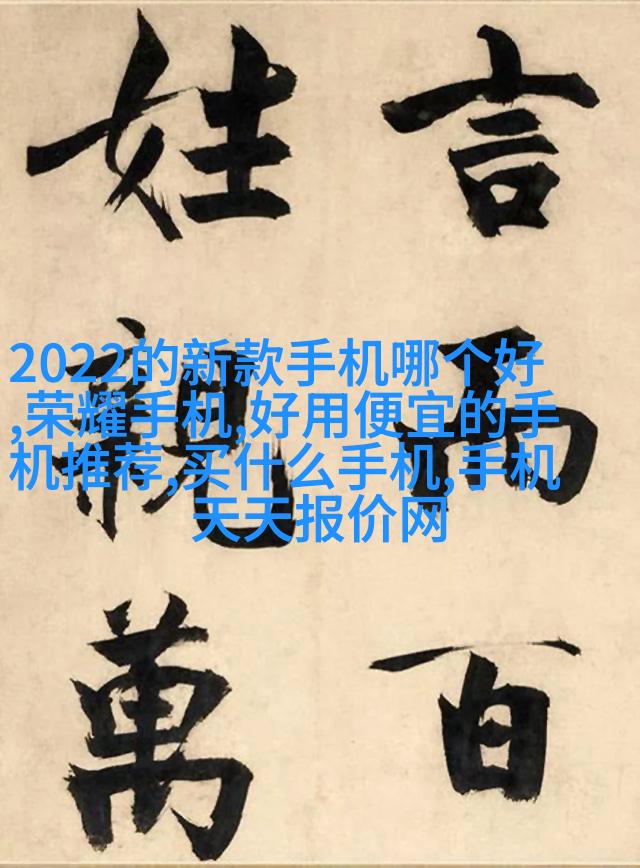 言而百
姓親萬
2022的新款手机哪个好
,荣耀手机,好用便宜的手
机推荐,买什么手机,手机
天天报价网